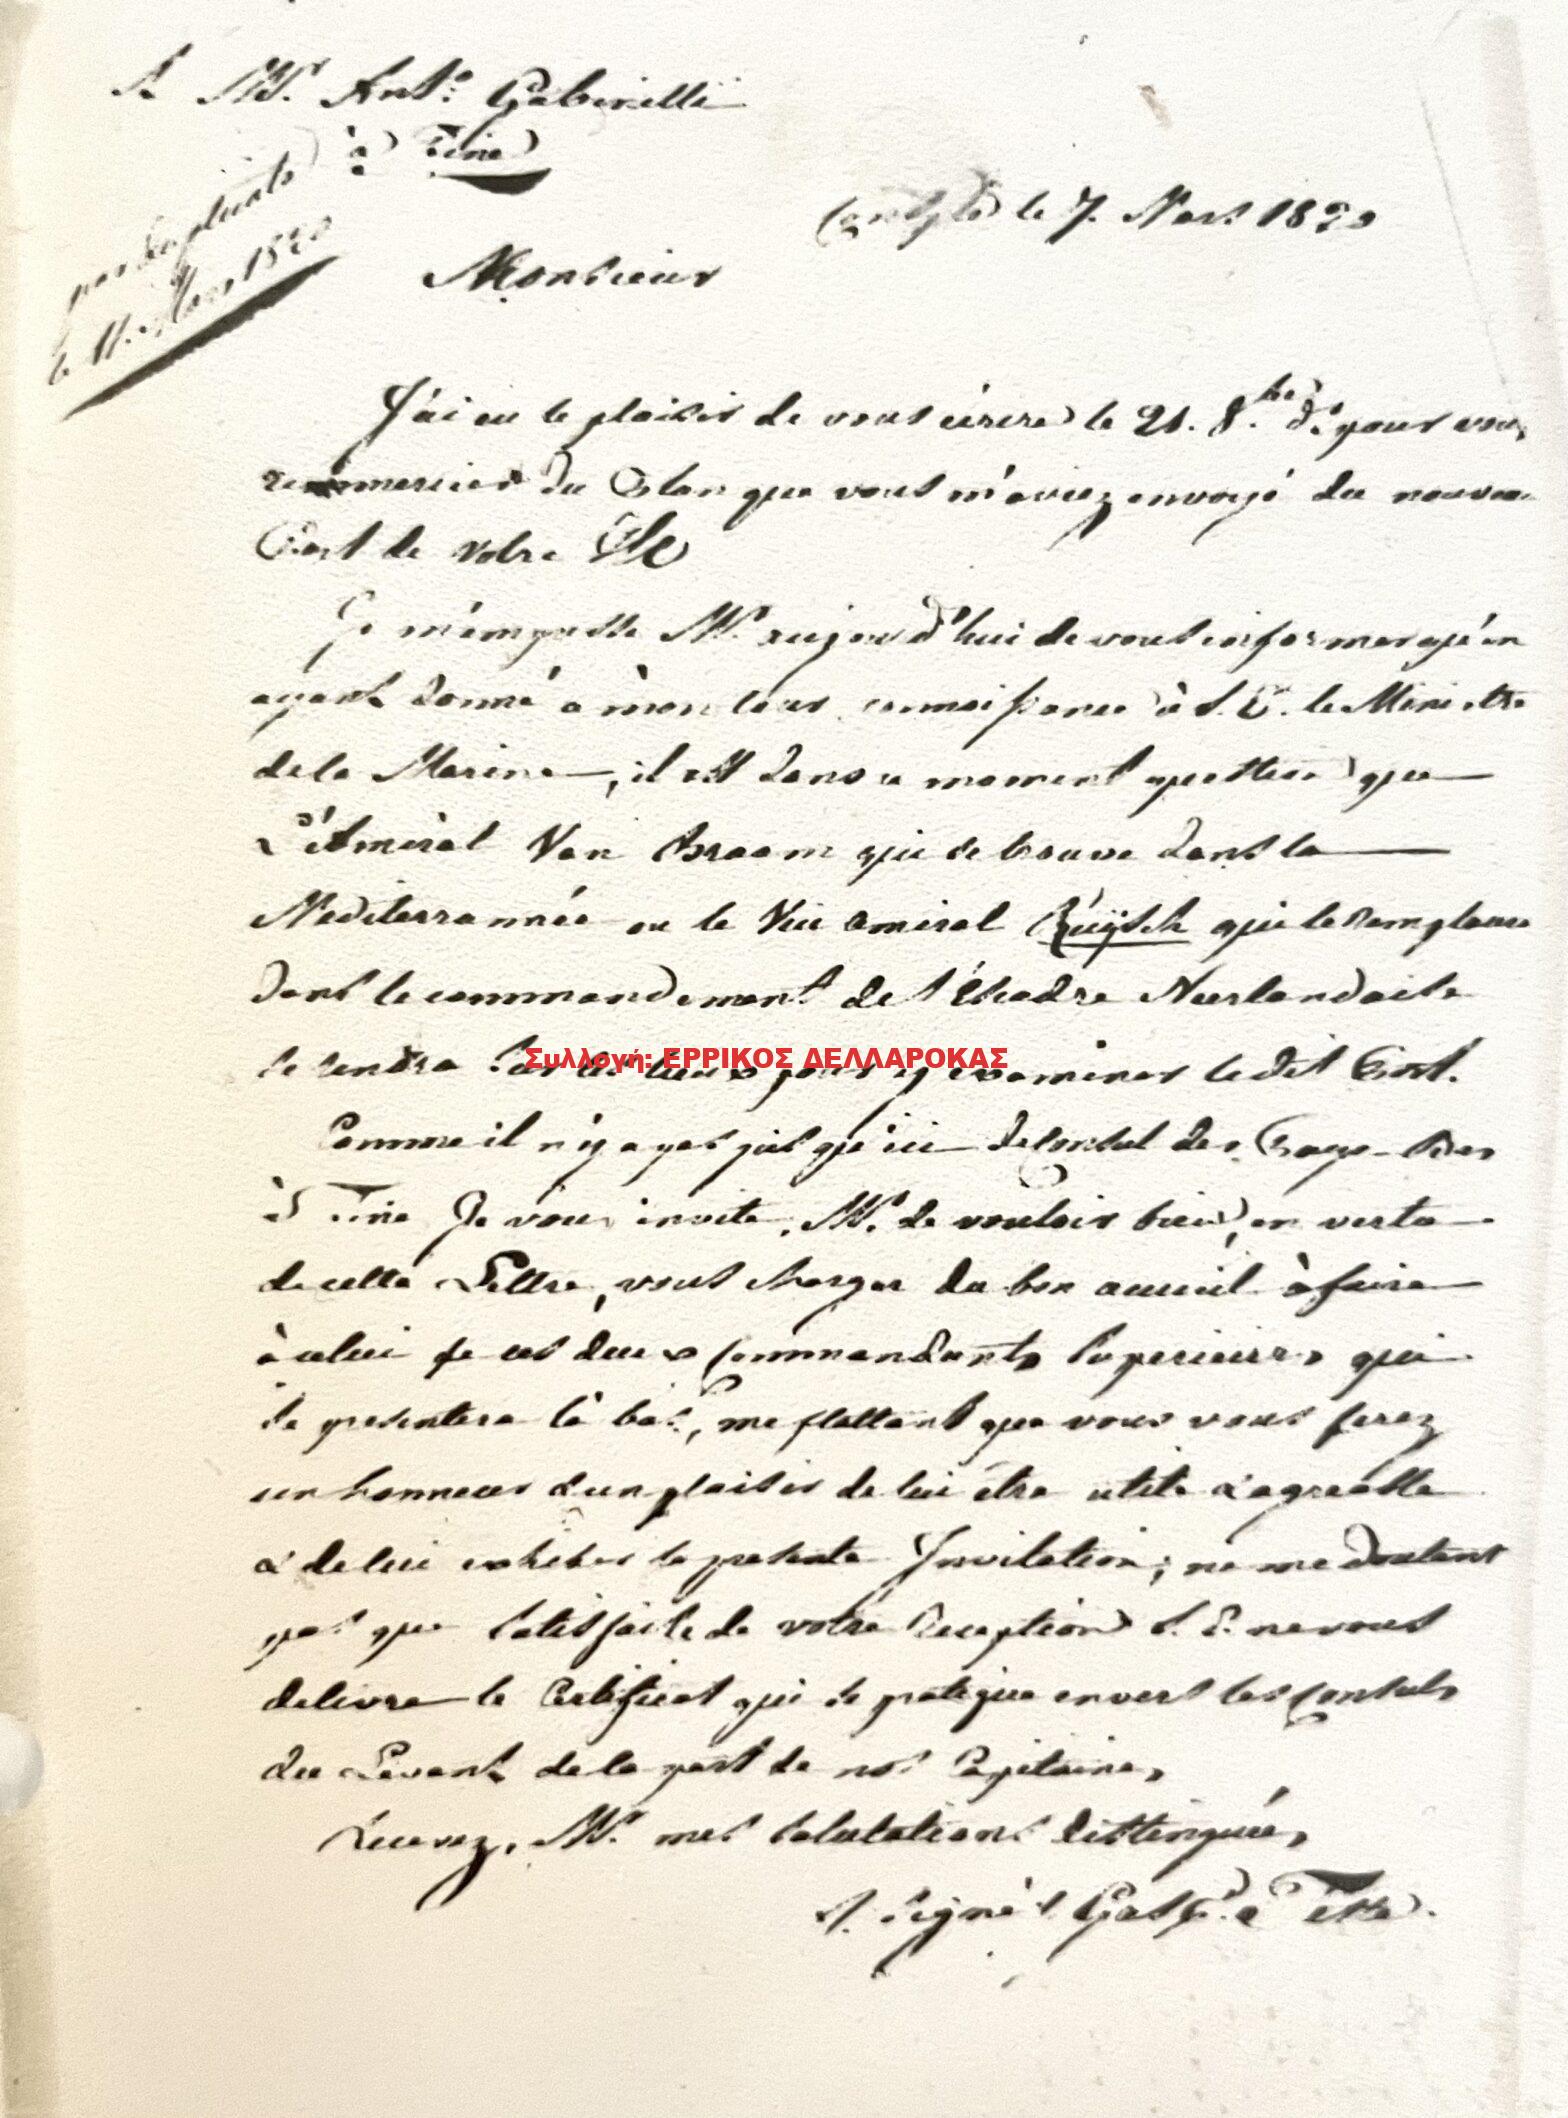 A Mr. Anto: Gabinelli
à Tine
par duplicata
le 11. Mars 1820
le 7. Mars 1820
Monsieur
J'ai eu le plaisir de vous écrire le 21. 8.bre do pour vous
remmercier du Plan que vous m'aviez envoyé du nouveau
Port de votre Isle
Je m'empresse Mr. aujourd'hui de vous informer qu'en
ayant donné à mon tour connaissance à S. E. le Ministre
de la Marine, il est dans ce moment question que
L'Amiral Van Braam qui se trouve dans la
Mediterrannée ou le Vice amiral Ruijsch qui le remplace
dans le commandement de l'Escadre Neerlandaise
se rendra sur les lieux pour y examiner le dit Port.
Συλλογή: ΕΡΡΙΚΟΣ ΔΕΛΛΑΡΟΚΑΣ
Comme il n'y a pas jusqu'ici de Consul des Pays-Bas
à Tine Je vous invite, Mr. de vouloir bien, en vertu
de cette Lettre, vous charger du bon acceuil à faire
à celui de ces deux Commandants Superieurs qui
se presentera là bas, me flattant que vous vous ferez
un honneur & un plaisir de lui être utile & agreable
& de lui exhiber la presente Invitation; ne me doutant
pas que satisfaite de votre Reception S. E. ne vous
delivre le Certificat qui se pratique envers les Consuls
du Levant de la part de nos Capitaines
Recevez, Mr. mes salutations distinguées
S. signé Gasp.d Testa.